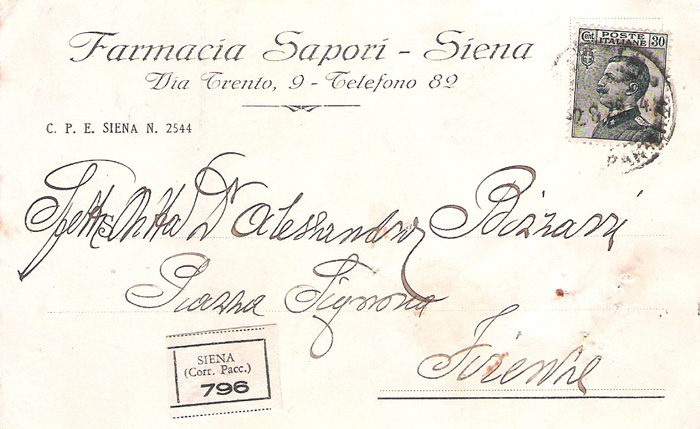 Farmacia Sapori - Siena
Via Trento, 9 - Telefono 82
C. P. E. SIENA N. 2544
Cent. POSTE ITALIANE 30
28
Spett. Ditta D' Alessandro Bizzarri
Piazza Signoria
Firenze
SIENA
(Corr. Pacc.)
796